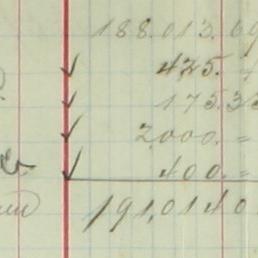 188.013.69
✓ 425.
✓ 175.33
✓ 2,000. =
✓ 400. =
191,0140